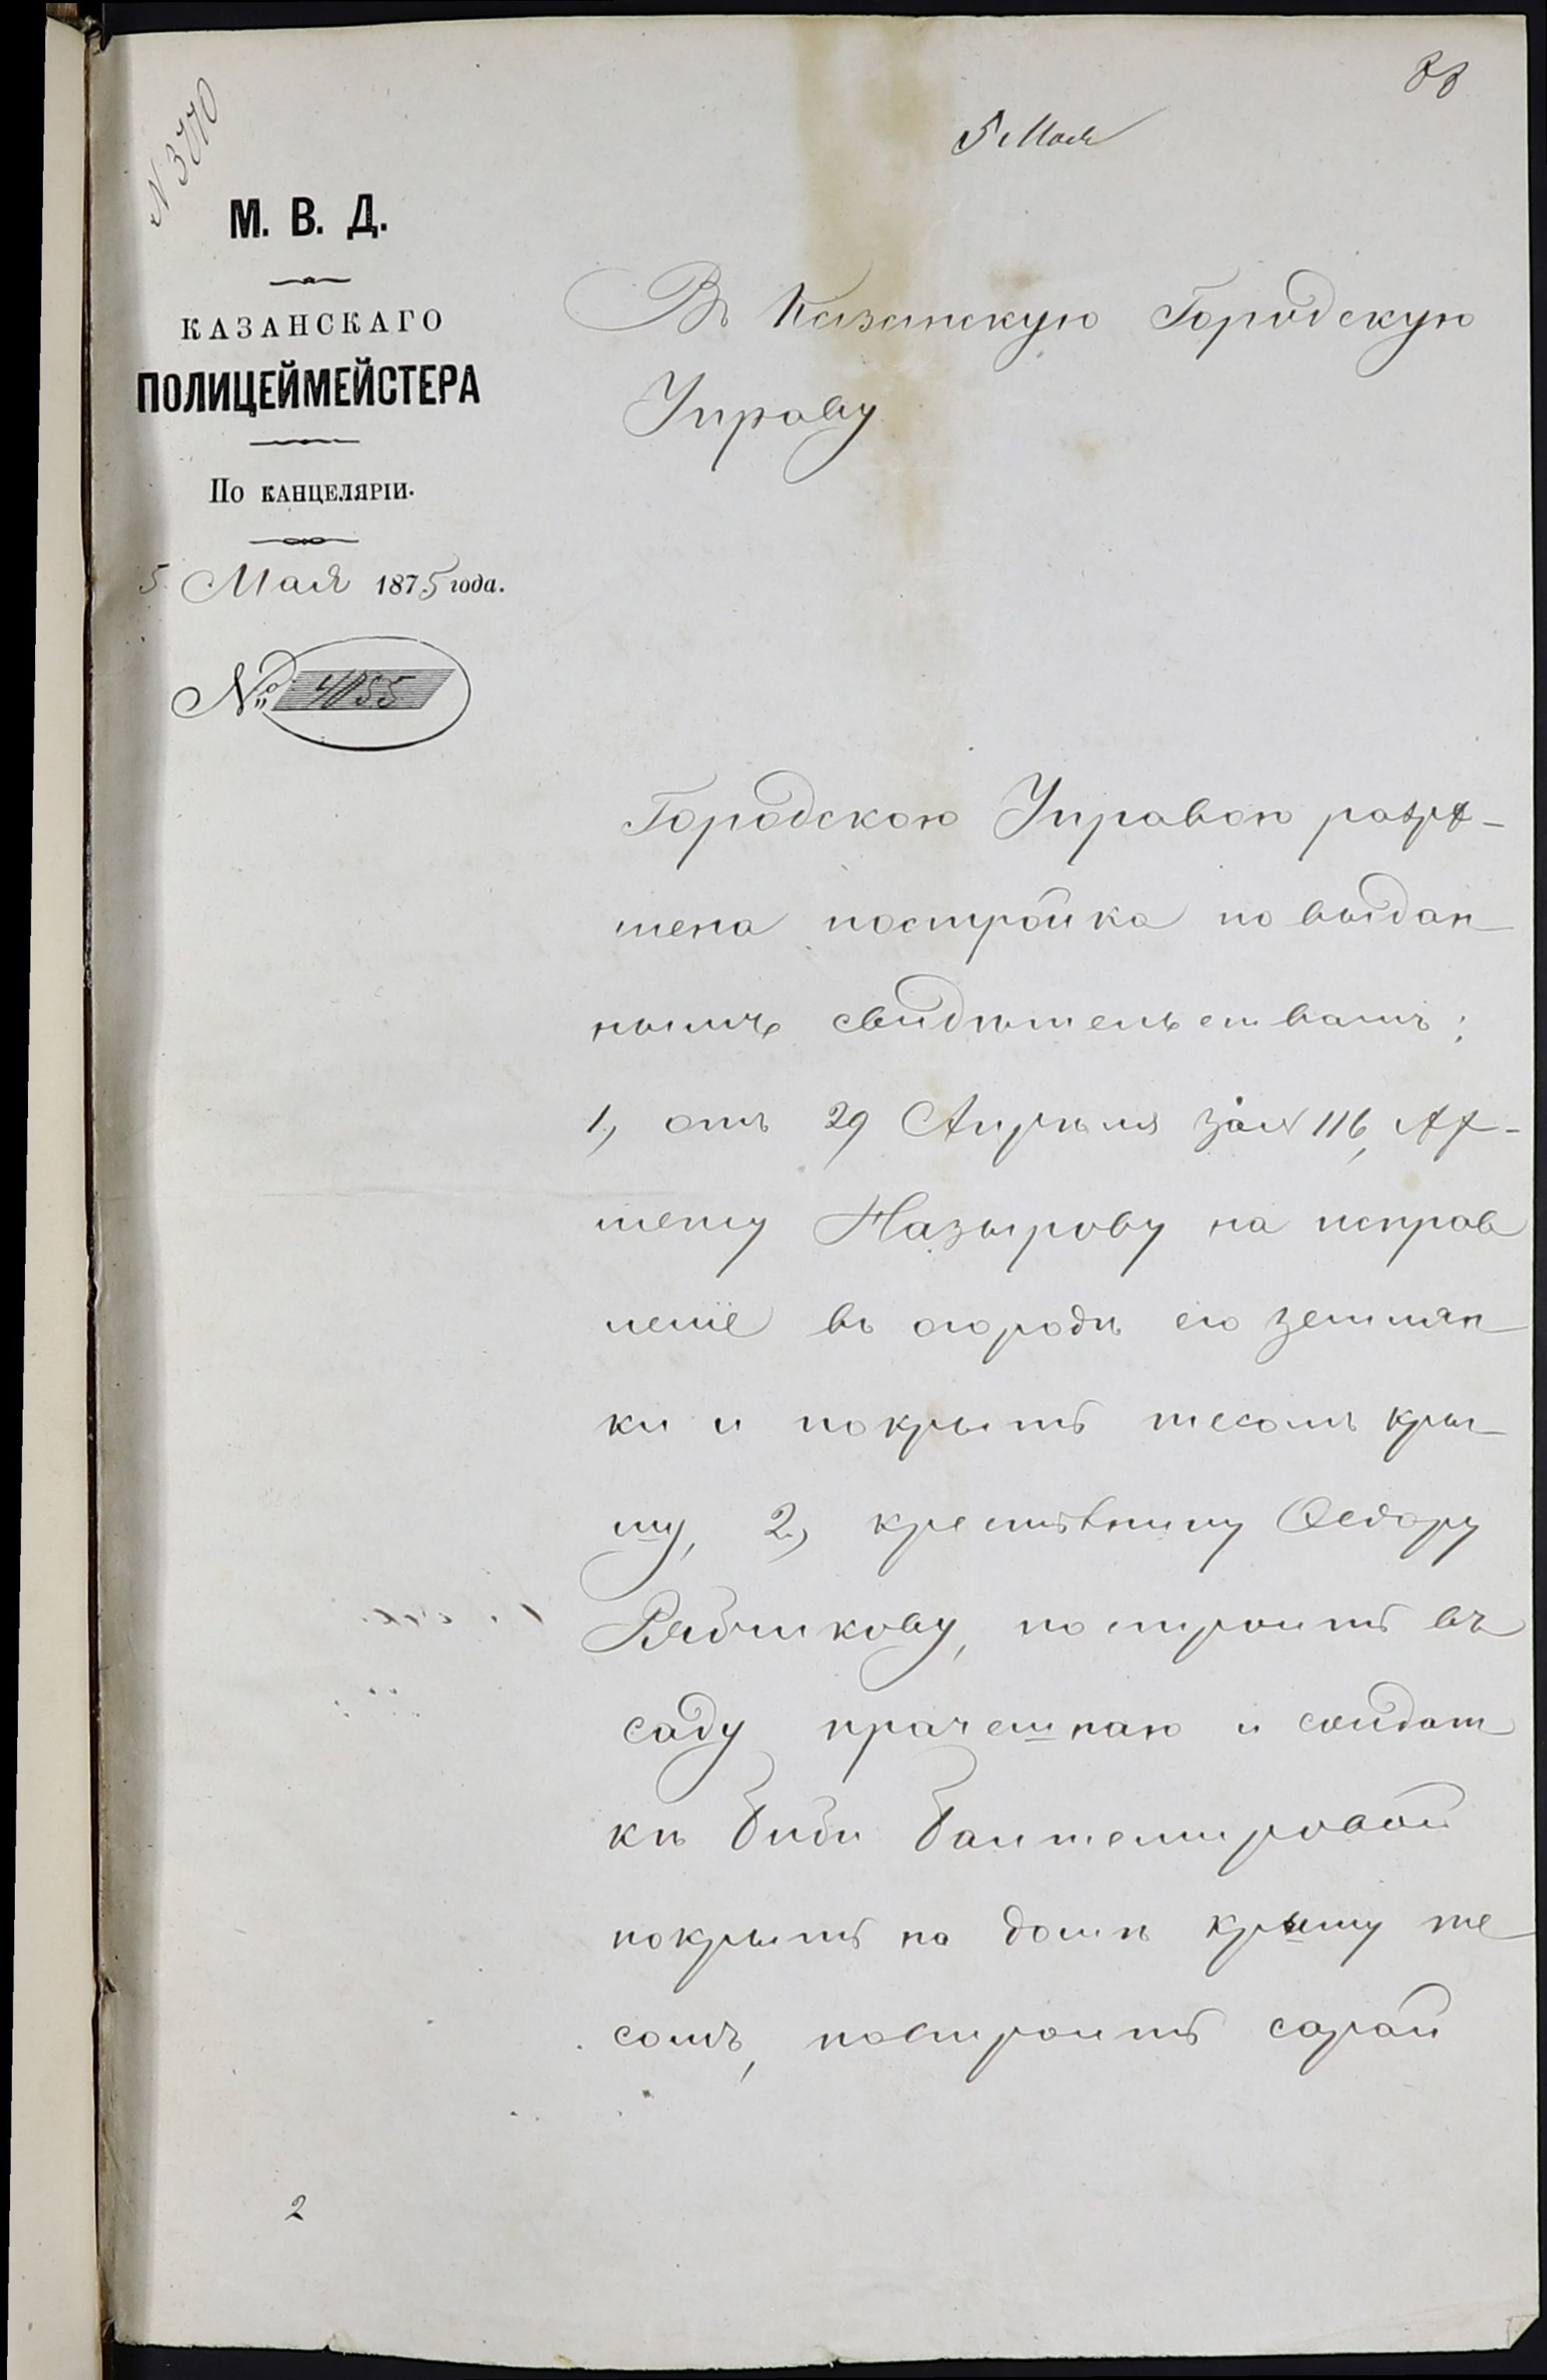 88
5 Мая
N 3770
М. В. Д.
КАЗАНСКАГО
ПОЛИЦЕЙМЕЙСТЕРА
По канцеляріи.
5 Мая 1875 года.
№ 4055
Въ Казанскую Городскую
Управу
Городскою Управою разрѣ-
шена постройка по выдан
нымъ свидѣтельствамъ:
1, отъ 29 Апрѣля за № 116,
Назырову на исправ
леніе въ огородѣ его землян
ки и покрыть тесомъ кры-
шу, 2, крестьянину Ѳедору
Рябчикову, построить въ
саду прачешною и солдат
кѣ Биби Баитемировой
покрыть на домѣ крышу те
сомъ, построить сарай
2